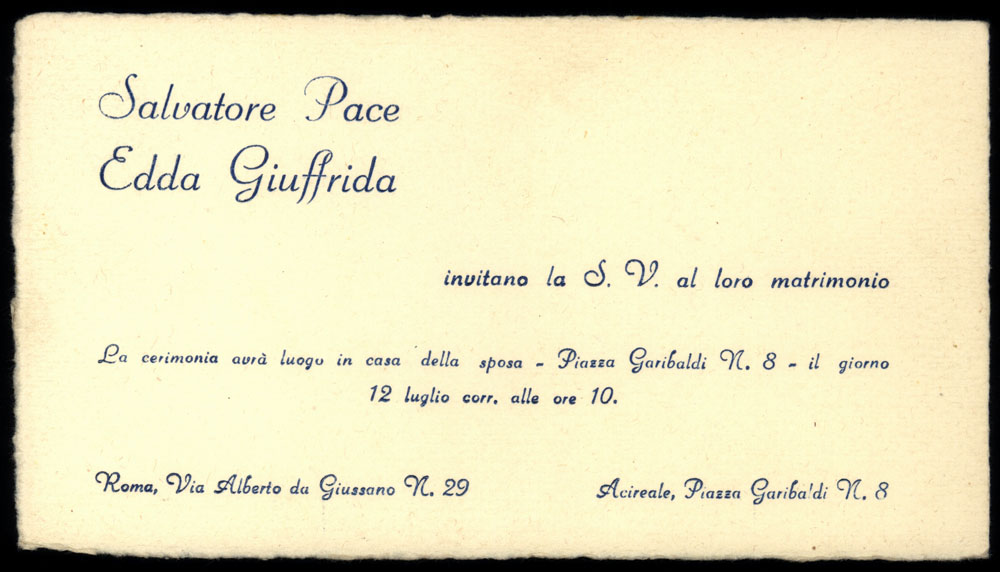 Salvatore Pace
Edda Giuffrida
invitano la S. V. al loro matrimonio
La cerimonia avrà luogo in casa della sposa - Piazza Garibaldi N. 8 - il giorno
12 luglio corr. alle ore 10.
Roma, Via Alberto da Giussano N. 29
Acireale, Piazza Garibaldi N. 8